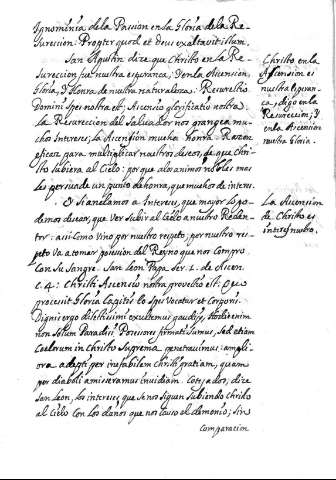 Ignominia de la Passion en la Gloria de la Re-
sureccion. Propter quod et Deus exaltavit illum,
San Agustin dize que Christo en la Re-
sureccion fue nuestra esperanca, y en la Ascension,
Gloria, y Honra de nuestra naturaleza. Resurectio
Domini spes nostra est, Ascencio glorificatio nostra.
La Resureccion del Salvador nos grangea mu-
cho Interes; la Ascension mucha honra. Razon
eficaz para multiplicar nuestros deseos, de que Chri-
sto subiera al Cielo: porque al animo nobles mas
les persuade un punto de honra, que mucho de interes.
O si anelamos a Interes, que mayor lo po-
demos desear, que Ver subir al Cielo a nuestro Redem-
tor: assi Como Vino por nuestro respeto; por nuestro res-
peto Va a tomar posesion del Reyno que nos Compro
Con su Sangre. San Leon Papa Ser. 1. de Ascen.
c. 4: Christi Ascencio nostra provectio est: Quo
procesit Gloria Capitis eo spes Vocatur et Corporis.
Digni ergo dilectissimi exultemus gaudijs, Hodie enim
non solum Paradisi Possesores firmati sumus, sed etiam
Coelorum in Christo Superna penetravimus: ampli-
ora adepti per inefabilem Christi gratiam, quam
per diaboli amiseramus invidiam. Cotejados, dize
San Leon, los intereses que se nos siguen subiendo Christo
al Cielo Con los danos que nos causo el demonio; sin
comparacion
Christo en la
Ascension es
nuestra Esperan-
ca, digo en la
Resureccion; y
en la Ascencion
nuestra Gloria.
La Ascension
de Christo es
interes nuestro.